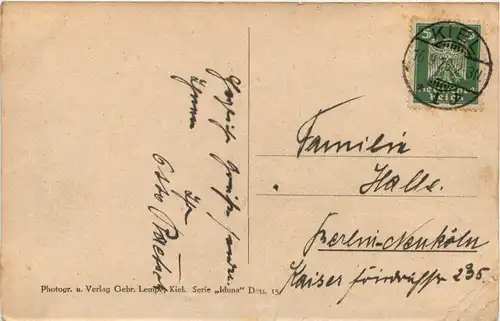 Herzliche Grüße senden
Ihnen
Ihr
Otto
KIEL
5
Familie
Halle.
Berlin-Neukölln
Kaiser Friedrichstr 235.
Photogr. u. Verlag Gebr. Lempe, Kiel. Serie „Iduna" Dess. 15